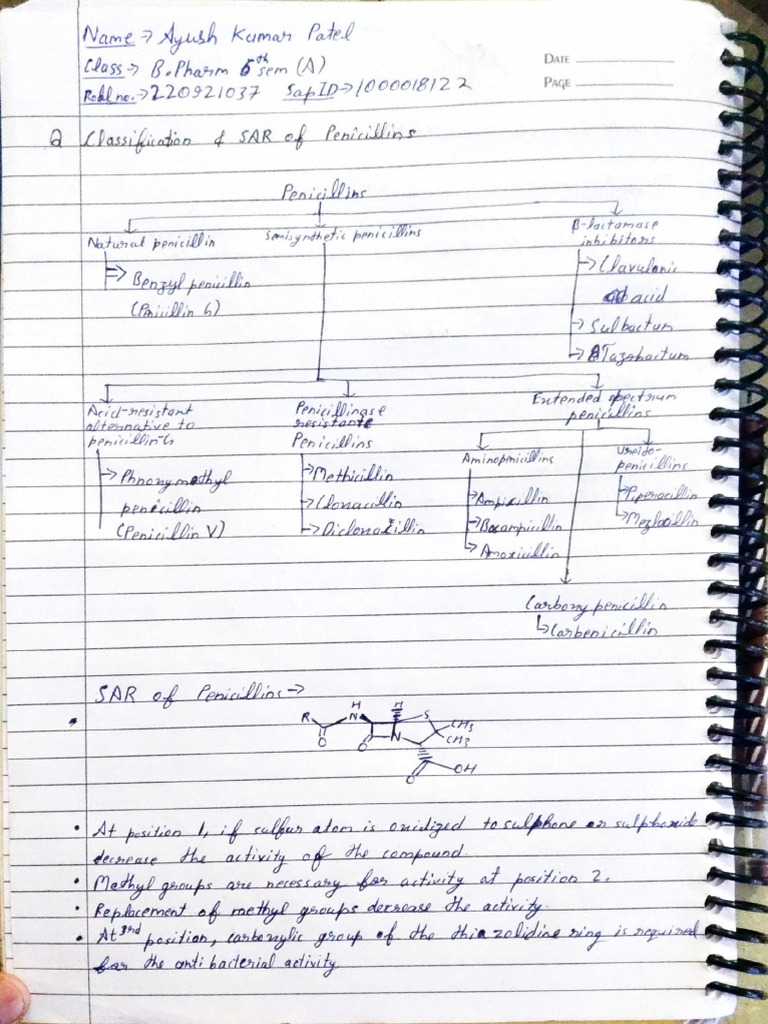 Name → Ayush Kumar Patel
Class → B.Pharm 6th sem (A)
DATE
Roll no. → 220921037 Sap ID → 1000018122
PAGE
Q Classification & SAR of Penicillins
Penicillins
Natural penicillin
→ Benzyl penicillin
(Penicillin G)
Semisynthetic penicillins
β-lactamase
inhibitors
→ Clavulanic
acid
→ Sulbactum
→ Tazobactum
Acid-resistant
alternative to
penicillin-G
→ Phnoxymethyl
penicillin
(Penicillin V)
Penicillinase
resistante
Penicillins
→ Methicillin
→ Cloxacillin
→ Dicloxacillin
Extended spectrum
penicillins
Aminopenicillins
→ Ampicillin
→ Bacampicillin
→ Amoxicillin
Ureido-
penicillins
→ Piperacillin
→ Mezlocillin
Carboxy penicillin
→ Carbenicillin
SAR of Penicillins →
H H
R N S CH3
O O N CH3
O OH
• At position 1, if sulfur atom is oxidized to sulphone or sulphoxide
decrease the activity of the compound.
• Methyl groups are necessary for activity at position 2.
• Replacement of methyl groups decrease the activity.
• At 3rd position, carboxylic group of the thiazolidine ring is required
for the anti bacterial activity